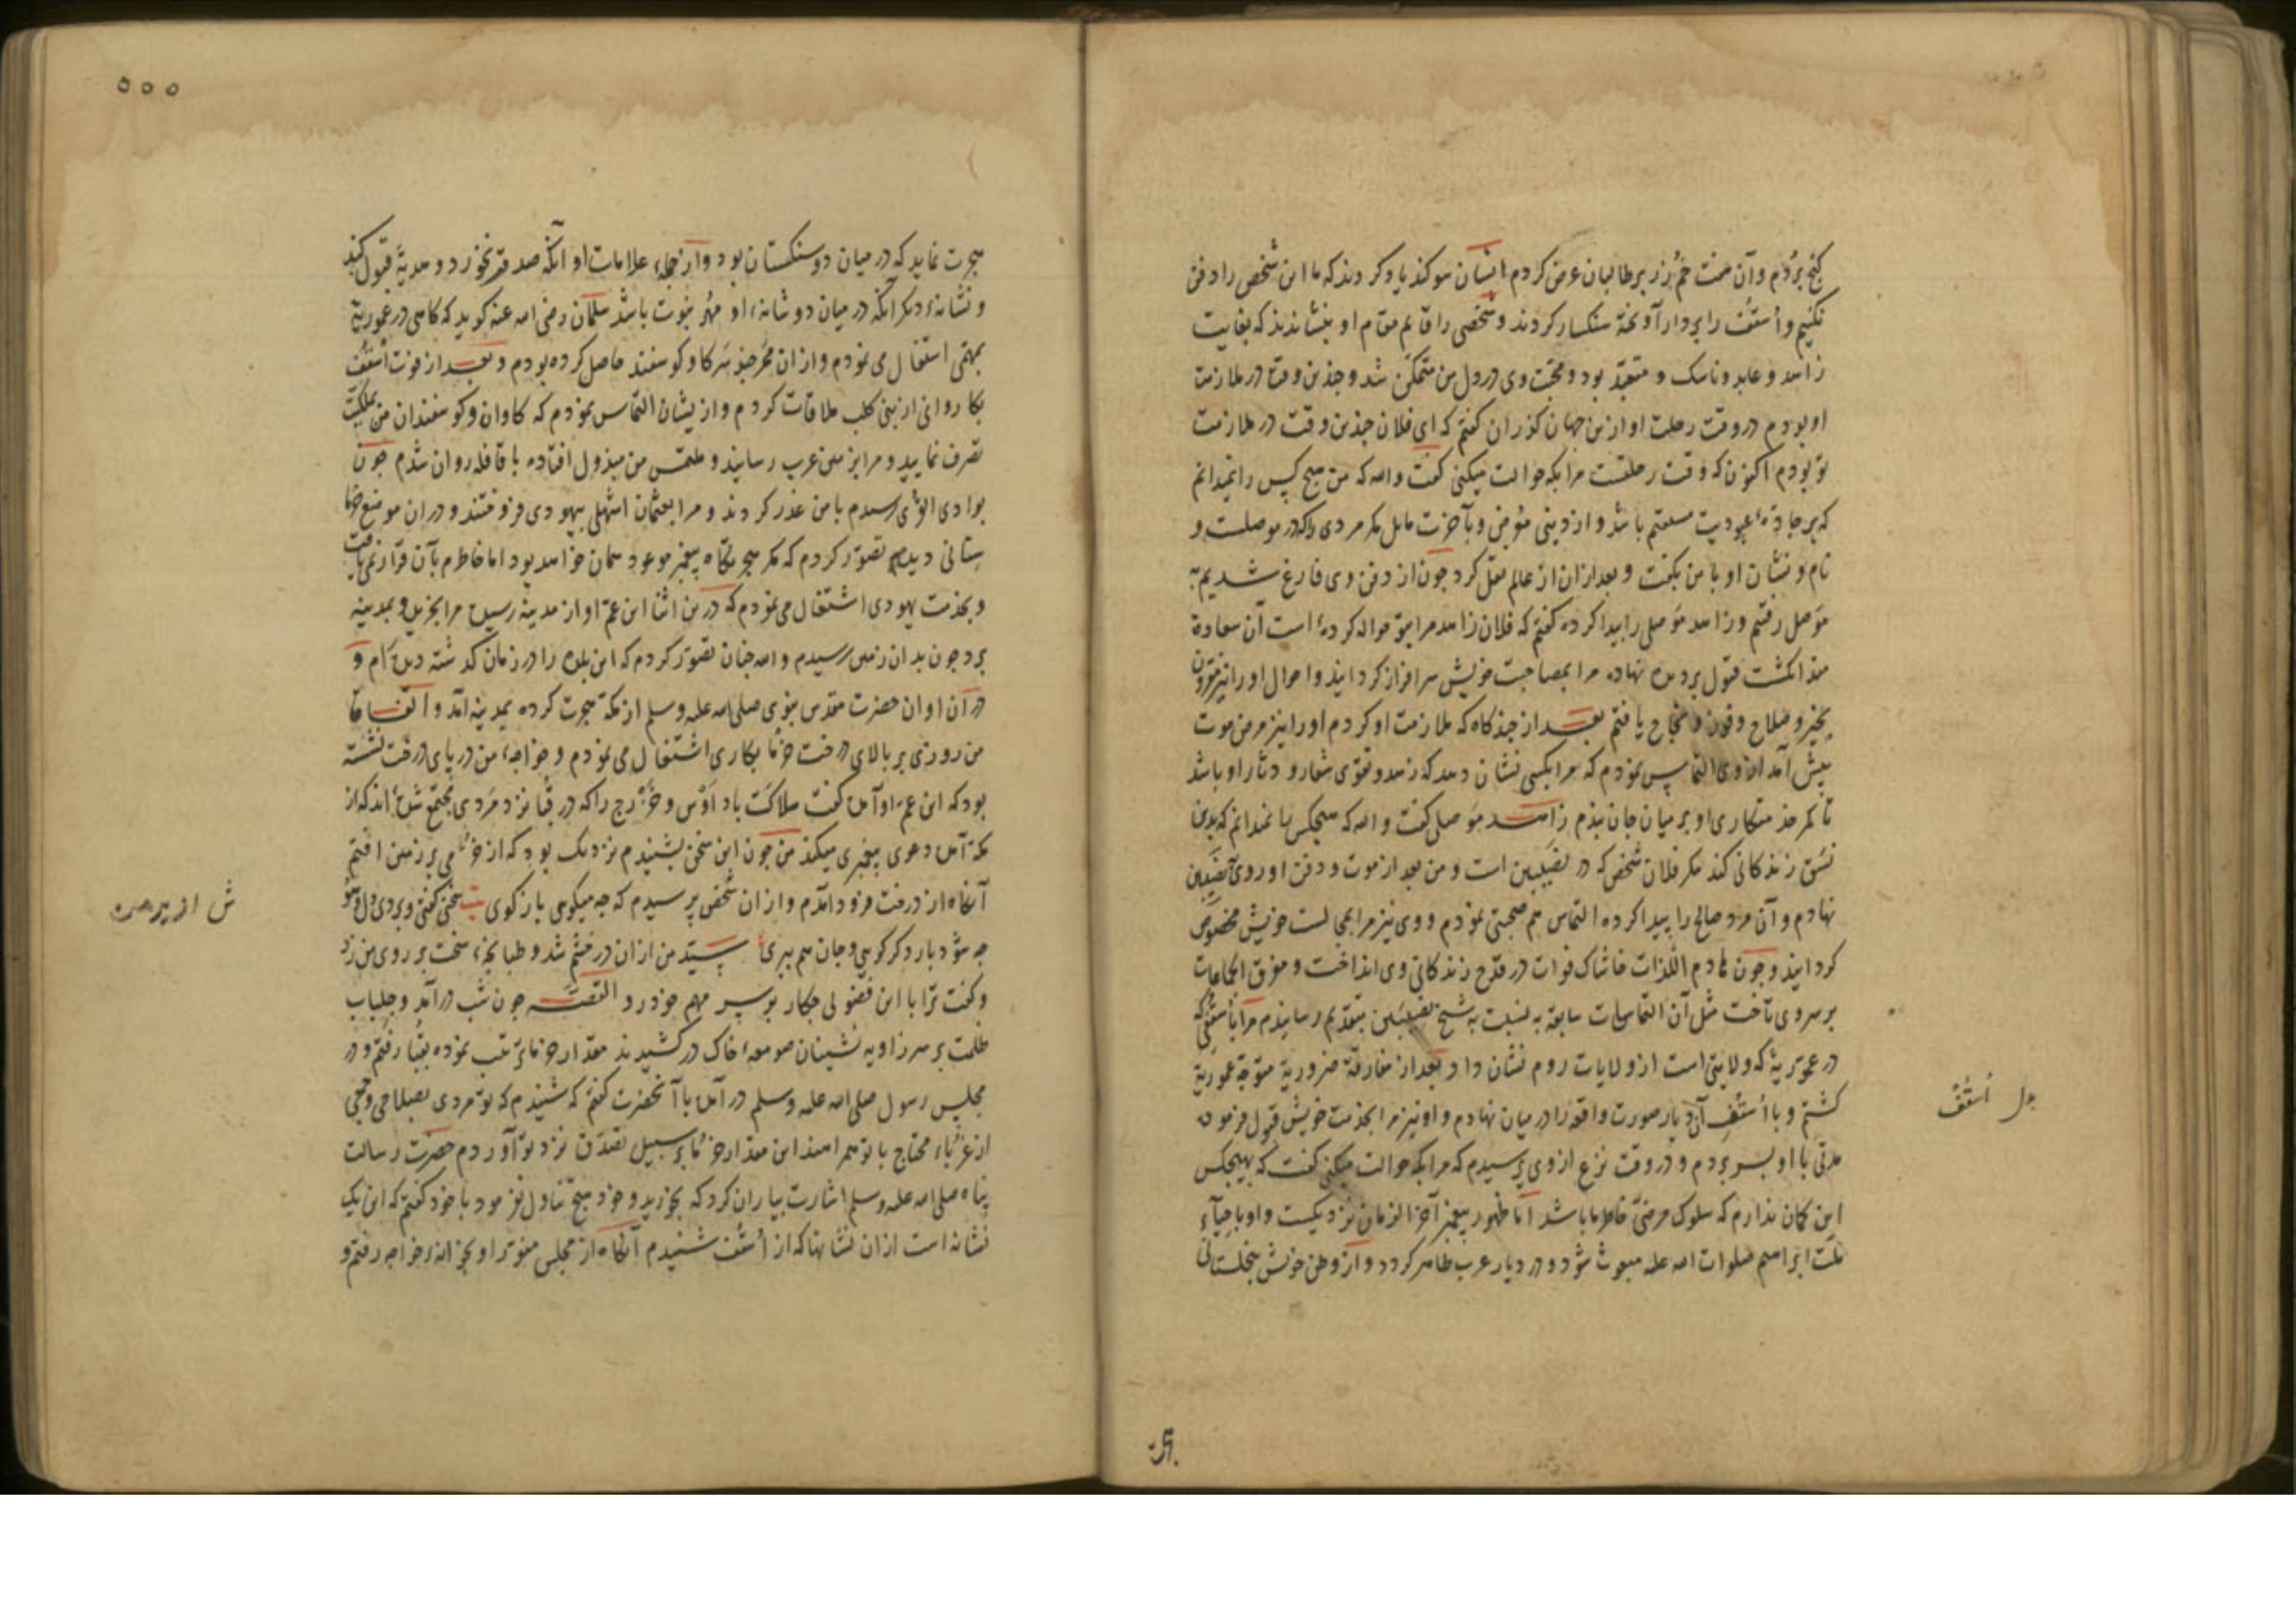 کنج بردم وآن هفت خم زر بر طالبان عرض کردم ایشان سوکند یاد کردند که ما این شخص را دفن
نکنیم و اُسقُف را بر دار آویخته سنکسار کردند و شخصی را قایم مقام او بنشاندند که بغایت
زاهد و عابد و ناسک و متعبد بود و محبت وی در دل من متمکن شد و چندین وقت در ملازمت
او بودم در وقت رحلت او ازین جهان کذران کفتم که ای فلان چندین وقت در ملازمت
تو بودم اکنون که وقت رحلتست مرا بکه حوالت میکنی کفت والله که من هیچ کس را نمیدانم
که بر جادهٔ عبودیت مستقیم باشد و از دینی معرض و بآخرت مایل مکر مردی را که در موصلست و
نام و نشان او با من بکفت و بعد از آن از عالم نقل کرد چون از دفن وی فارغ شدیم به
موصل رفتم و زاهد موصلی را پیدا کرده کفتم که فلان زاهد مرا بتو حواله کرده است آن سعادة
مند انکشت قبول بر دیده نهاده مرا بمصاحبت خویش سرافراز کردانید و احوال او را نیز مقرون
بخیر و صلاح و فوز و نجاح یافتم بعد از چندکاه که ملازمت او کردم او را نیز مرض موت
پیش آمد از وی التماس نمودم که مرا بکسی نشان دهد که زهد و تقوی شعار و دثار او باشد
تا کمر خدمتکاری او بر میان جان بندم زاهد موصلی کفت والله که هیچکس را نمیدانم که بدین
نسق زندکانی کند مکر فلان شخص که در نصیبین است و من بعد از موت و دفن او روی بنصیبین
نهادم و آن مرد صالح را پیدا کرده التماس هم صحبتی نمودم و وی نیز مرا بمجالست خویش مخصوص
کردانید و چون هادم اللذات خاشاک فوات در قدح زندکانی وی انداخت و مفرق الجماعات
بر سر وی تاخت مثل آن التماسات سابقه به نسبت به شیخ نصیبین بتقدیم رسانیدم مرا باسقفی که
در عموریه که ولایتی است از ولایات روم نشان داد و بعد از مفارقة ضروریة متوجه عموریة
کشتم و با اُسقُف آن دیار صورت واقعه را در میان نهادم و او نیز مرا بخدمت خویش قبول فرمود
مدتی با او بسر بردم و در وقت نزع از وی پرسیدم که مرا بکه حوالت میکنی کفت که بهیچکس
این کمان ندارم که سلوک مرضی خاطر ما باشد اما ظهور پیغمبر آخر الزمان نزدیکست و او باحیآء
ملت ابراهیم صلوات الله علیه مبعوث شود و در دیار عرب ظاهر کردد و از وطن خویش بنخلستانی
بدل اُسقُف
هجرت نماید که در میان دو سنکستان بود و از جمله علامات او آنکه صدقه نخورد و هدیه قبول کند
و نشانهٔ دیکر آنکه در میان دو شانهٔ او مهر نبوت باشد سلمان رضی الله عنه کوید که کاهی در عموریة
بمهمی اشتغال می نمودم و از ان ممر چند سر کاو و کوسفند حاصل کرده بودم و بعد از فوت اُسقُف
بکاروانی از بنی کلب ملاقات کردم و از ایشان التماس نمودم که کاوان و کوسفندان من بملکیت
تصرف نمایید و مرا بزمین عرب رسانید و ملتمس من مبذول افتاده با قافله روان شدم چون
بوادی القری رسیدم با من غدر کردند و مرا بعثمان اشهلی یهودی فروختند و در ان موضع خرما
ستانی دیدم تصور کردم که مکر هجرتکاه پیغمبر موعود همان خواهد بود اما خاطرم بآن قرار نمی یافت
و بخدمت یهودی اشتغال می نمودم که درین اثنا ابن عم او از مدینه رسیده مرا بخرید و بمدینه
برد چون بدان زمین رسیدم والله چنان تصور کردم که این بلده را در زمان کذشته دیده ام و
در آن اوان حضرت مقدس نبوی صلی الله علیه وسلم از مکه هجرت کرده بمدینه آمد و اتفاقا
من روزی بر بالای درخت خرما بکاری اشتغال می نمودم و خواجهٔ من در پای درخت نشسته
بود که ابن عم او آمده کفت هلاکت باد اوس و خزرج را که در قبا نزد مردی مجتمع شده اند که از
مکه آمده دعوی پیغمبری میکند من چون این سخن بشنیدم نزدیک بود که از خرما بر زمین افتم
آنکاه از درخت فرود آمدم و از ان شخص پرسیدم که چه میکویی باز کوی بیت سخن کفتی و بردی دل
چه شود بار دکر کویی و جان هم ببری سید من ازان در خشم شد و طبانچهٔ سخت بر روی من زد
و کفت ترا با این فضولی چکار بر سر مهم خود رو القصه چون شب درآمد و جلباب
ظلمت بر سر زاویه نشینان صومعهٔ خاک در کشیدند مقدار خرمایی ترتیب نموده بقبا رفتم و در
مجلس رسول صلی الله علیه وسلم درآمده با آنحضرت کفتم که شنیدم که تو مردی بصلاحی و جمعی
از غربا محتاج با تو همراهند این مقدار خرما بر سبیل تصدق نزد تو آوردم حضرت رسالت
پناه صلی الله علیه وسلم اشارت بیاران کرد که بخورید و خود هیچ تناول نفرمود با خود کفتم که این یک
نشانه است ازان نشانها که از اُسقُف شنیدم آنکاه از مجلس منور او بخانهٔ خواجه رفتم و